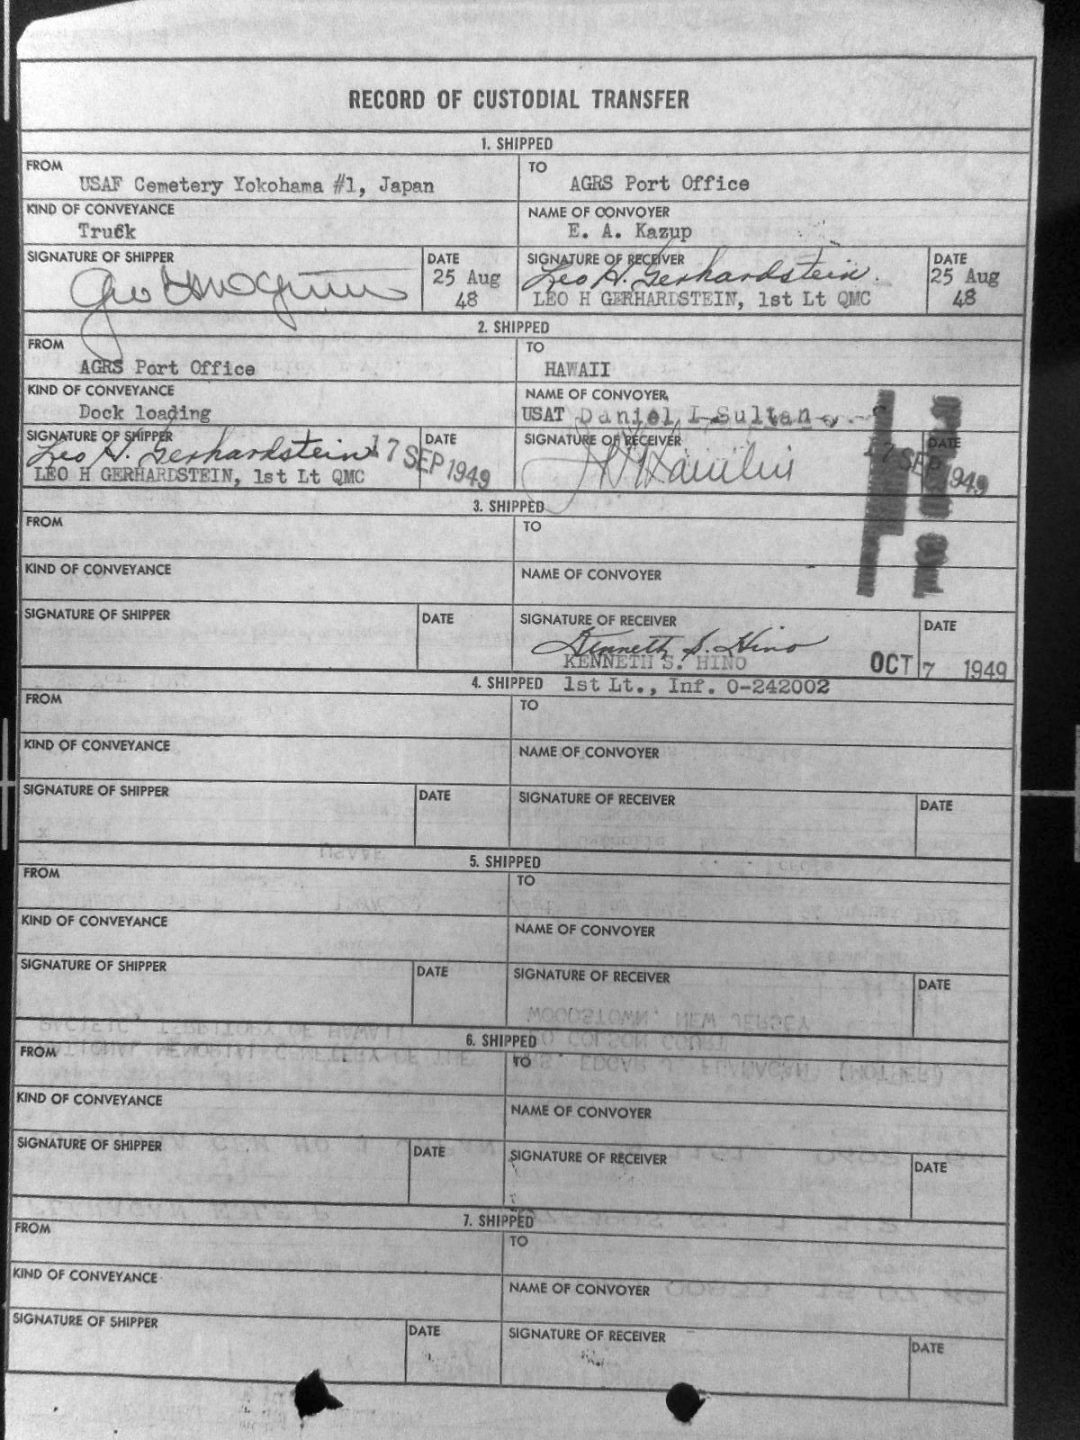 RECORD OF CUSTODIAL TRANSFER
1. SHIPPED
FROM
USAF Cemetery Yokohama #1, Japan
TO
AGRS Port Office
KIND OF CONVEYANCE
Truck
NAME OF CONVOYER
E. A. Kazup
SIGNATURE OF SHIPPER
DATE
25 Aug
48
SIGNATURE OF RECEIVER
Leo H. Gerhardstein.
LEO H GERHARDSTEIN, 1st Lt QMC
DATE
25 Aug
48
2. SHIPPED
FROM
AGRS Port Office
TO
HAWAII
KIND OF CONVEYANCE
Dock loading
NAME OF CONVOYER
USAT Daniel I Sultan
SIGNATURE OF SHIPPER
Leo H. Gerhardstein
LEO H GERHARDSTEIN, 1st Lt QMC
DATE
17 SEP 1949
SIGNATURE OF RECEIVER
DATE
17 SEP 1949
3. SHIPPED
FROM
TO
KIND OF CONVEYANCE
NAME OF CONVOYER
SIGNATURE OF SHIPPER
DATE
SIGNATURE OF RECEIVER
Kenneth S. Hino
KENNETH S. HINO
1st Lt., Inf. O-242002
DATE
OCT 7 1949
4. SHIPPED
FROM
TO
KIND OF CONVEYANCE
NAME OF CONVOYER
SIGNATURE OF SHIPPER
DATE
SIGNATURE OF RECEIVER
DATE
5. SHIPPED
FROM
TO
KIND OF CONVEYANCE
NAME OF CONVOYER
SIGNATURE OF SHIPPER
DATE
SIGNATURE OF RECEIVER
DATE
6. SHIPPED
FROM
TO
KIND OF CONVEYANCE
NAME OF CONVOYER
SIGNATURE OF SHIPPER
DATE
SIGNATURE OF RECEIVER
DATE
7. SHIPPED
FROM
TO
KIND OF CONVEYANCE
NAME OF CONVOYER
SIGNATURE OF SHIPPER
DATE
SIGNATURE OF RECEIVER
DATE